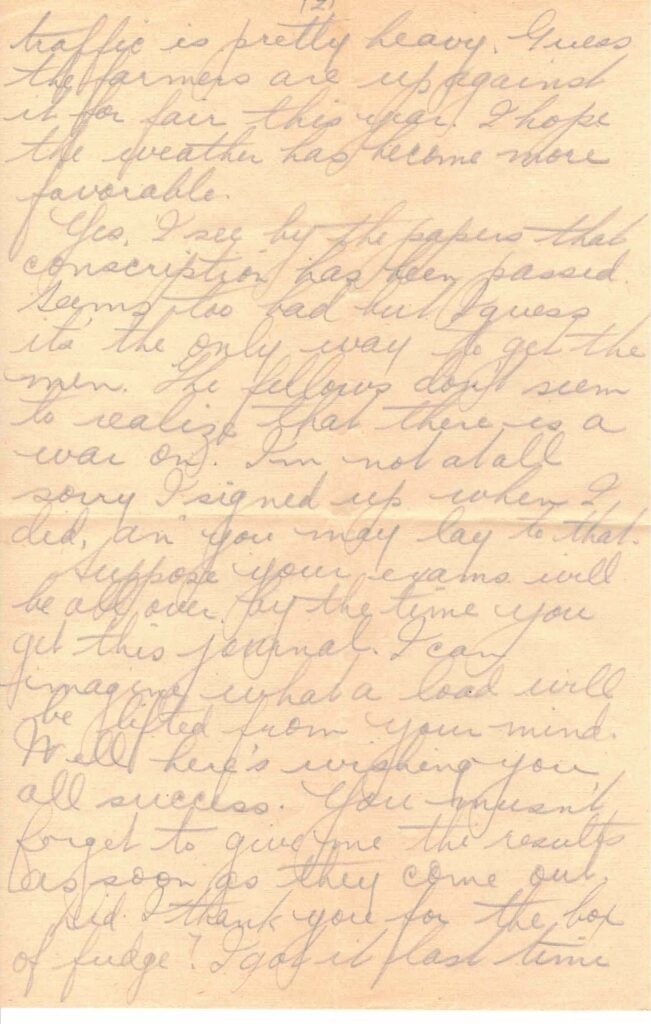 (2)
traffic is pretty heavy. Guess
the farmers are up against
it for fair this year. I hope
the weather has become more
favorable.
Yes, I see by the papers that
conscription has been passed.
Seems too bad but I guess
it's the only way to get the
men. The fellows don't seem
to realize that there is a
war on. I'm not at all
sorry I signed up when I
did, an' you may lay to that.
Suppose your exams will
be all over by the time you
get this journal. I can
imagine what a load will
be lifted from your mind.
Well here's wishing you
all success. You musn't
forget to give me the results
as soon as they come out.
Did I thank you for the box
of fudge? I got it last time